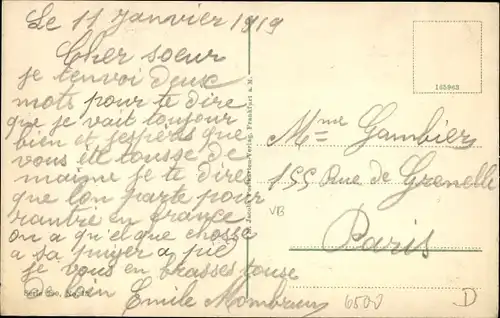 Le 11 Janvier 1919
Cher soeur
je tenvoi deux
mots pour te dire
que je vait toujour
bien et jesperes que
vous ete tousse de
maime je te dire
que lon parte pour
rantre en france
on a quel que chosse
a sa puyer a pie
je vous en brasses touse
de loin Emile
Serie 290, No.
Frankfurt a. M.
165963
Mme Gambier
155 Rue de Grenelle
Paris
VB
6500
D